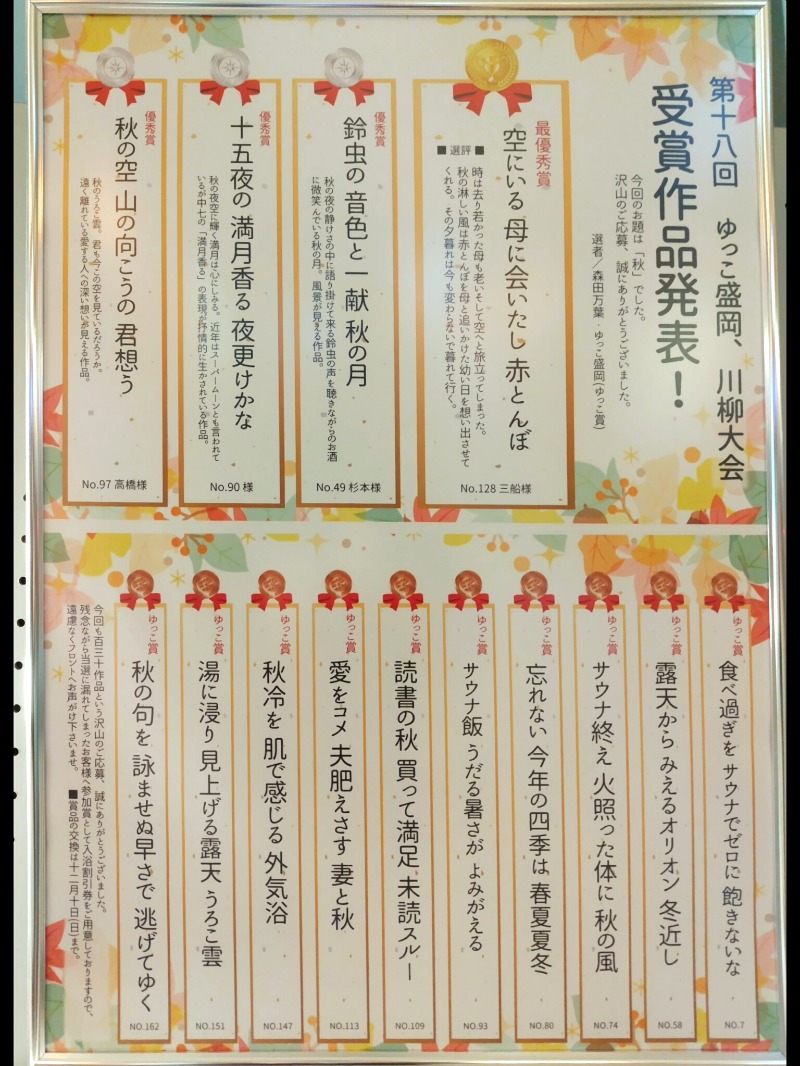 第十八回　ゆっこ盛岡、川柳大会
受賞作品発表！
今回のお題は「秋」でした。
沢山のご応募、誠にありがとうございました。
選者／森田万葉・ゆっこ盛岡(ゆっこ賞)
最優秀賞
空にいる 母に会いたし 赤とんぼ
■選評■
時は去り若かった母も老いそして空へと旅立ってしまった。
秋の淋しい風は赤とんぼを母と追いかけた幼い日を想い出させて
くれる。その夕暮れは今も変わらないで暮れて行く。
No.128 三船様
優秀賞
鈴虫の 音色と一献 秋の月
秋の夜の静けさの中に語り掛けて来る鈴虫の声を聴きながらのお酒
に微笑んでいる秋の月。風景が見える作品。
No.49 杉本様
優秀賞
十五夜の 満月香る 夜更けかな
秋の夜空に輝く満月は心にしみる。近年はスーパームーンとも言われて
いるが中七の「満月香る」の表現が抒情的に生かされている作品。
No.90 一様
優秀賞
秋の空 山の向こうの 君想う
秋のうろこ雲。君も今この空を見ているだろうか。
遠く離れている愛する人への深い想いが見える作品。
No.97 高橋様
ゆっこ賞
食べ過ぎを サウナでゼロに 飽きないな
NO.7
ゆっこ賞
露天から みえるオリオン 冬近し
NO.58
ゆっこ賞
サウナ終え 火照った体に 秋の風
NO.74
ゆっこ賞
忘れない 今年の四季は 春夏夏冬
NO.80
ゆっこ賞
サウナ飯 うだる暑さが よみがえる
NO.93
ゆっこ賞
読書の秋 買って満足 未読スルー
NO.109
ゆっこ賞
愛をコメ 夫肥えさす 妻と秋
NO.113
ゆっこ賞
秋冷を 肌で感じる 外気浴
NO.147
ゆっこ賞
湯に浸り 見上げる露天 うろこ雲
NO.151
ゆっこ賞
秋の句を 詠ませぬ早さで 逃げてゆく
NO.162
今回も百三十作品という沢山のご応募、誠にありがとうございました。
残念ながら当選に漏れてしまったお客様へ参加賞として入浴割引券をご用意しておりますので、
遠慮なくフロントへお声がけ下さいませ。　■賞品の交換は十二月十日(日)まで。